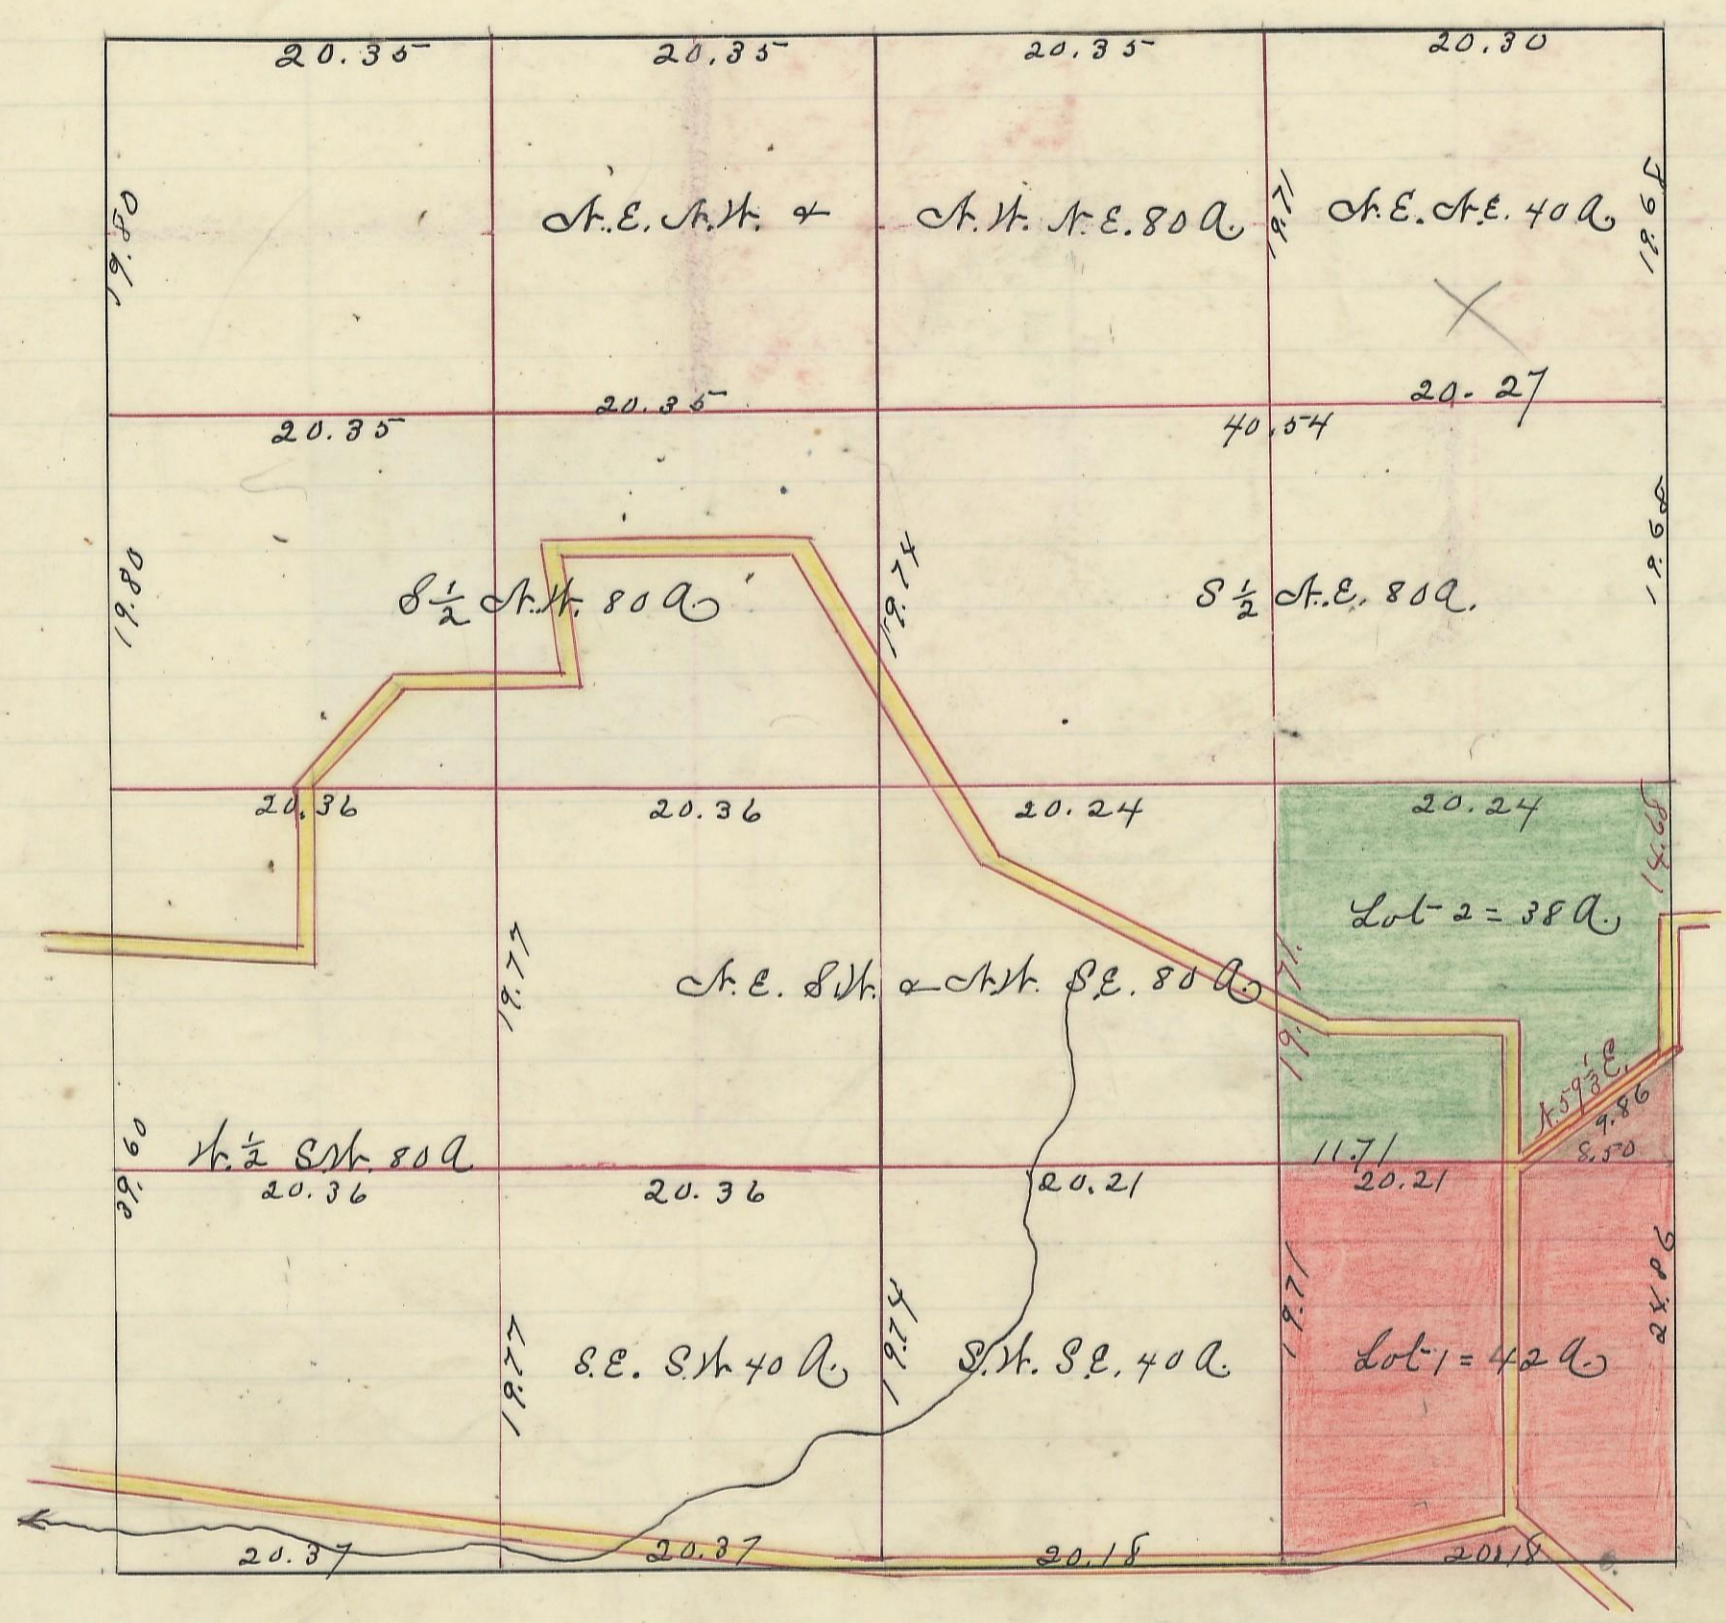 20.35
20.35
20.35
20.30
19.80
N.E. N.W. &
N.W. N.E. 80 A.
19.71
N.E. N.E. 40 A.
19.68
20.35
20.27
20.35
40.54
19.80
S ½ N.W. 80 A.
19.74
S ½ N.E. 80 A.
19.68
20.36
20.36
20.24
20.24
14.68
Lot 2 = 38 A.
19.77
N.E. S.W. & N.W. S.E. 80 A.
19.71
N. 59 ⅓ E.
9.86
8.50
11.71
39.60
W. ½ S.W. 80 A
20.36
20.36
20.21
20.21
19.77
S.E. S.W 40 A.
19.74
S.W. S.E. 40 A.
19.71
Lot 1 = 42 A.
24.86
20.37
20.37
20.18
20.18